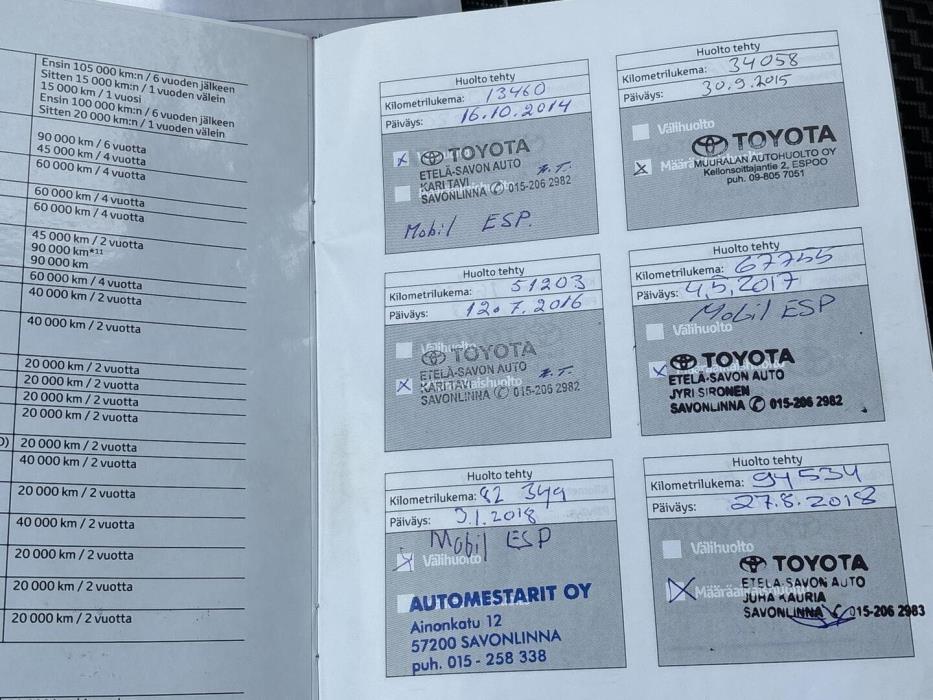 Ensin 105 000 km:n / 6 vuoden jälkeen
Sitten 15 000 km:n / 1 vuoden välein
15 000 km / 1 vuosi
Ensin 100 000 km:n / 6 vuoden jälkeen
Sitten 20 000 km:n / 1 vuoden välein
90 000 km / 6 vuotta
45 000 km / 4 vuotta
60 000 km / 4 vuotta
60 000 km / 4 vuotta
60 000 km / 4 vuotta
45 000 km / 2 vuotta
90 000 km*11
90 000 km
60 000 km / 4 vuotta
40 000 km / 2 vuotta
40 000 km / 2 vuotta
20 000 km / 2 vuotta
20 000 km / 2 vuotta
20 000 km / 2 vuotta
20 000 km / 2 vuotta
20 000 km / 2 vuotta
40 000 km / 2 vuotta
20 000 km / 2 vuotta
40 000 km / 2 vuotta
20 000 km / 2 vuotta
20 000 km / 2 vuotta
20 000 km / 2 vuotta
Huolto tehty
Kilometrilukema: 13460
Päiväys: 16.10.2014
TOYOTA
ETELÄ-SAVON AUTO
KARI TAVI
SAVONLINNA 015-206 2982
Mobil ESP.
Huolto tehty
Kilometrilukema: 34058
Päiväys: 30.9.2015
Välihuolto
TOYOTA
MUURALAN AUTOHUOLTO OY
Kellonsoittajantie 2, ESPOO
puh. 09-805 7051
Huolto tehty
Kilometrilukema: 51203
Päiväys: 12.7.2016
Välihuolto
TOYOTA
ETELÄ-SAVON AUTO
KARI TAVI
SAVONLINNA 015-206 2982
Huolto tehty
Kilometrilukema: 67755
Päiväys: 4.5.2017
Mobil ESP
Välihuolto
TOYOTA
ETELÄ-SAVON AUTO
JYRI SIRONEN
SAVONLINNA 015-206 2982
Huolto tehty
Kilometrilukema: 82 349
Päiväys: 9.1.2018
Mobil ESP
Välihuolto
AUTOMESTARIT OY
Ainonkatu 12
57200 SAVONLINNA
puh. 015 - 258 338
Huolto tehty
Kilometrilukema: 94534
Päiväys: 27.8.2018
Välihuolto
Määräaikaishuolto
TOYOTA
ETELÄ-SAVON AUTO
JUHA KAURIA
SAVONLINNA 015-206 2983